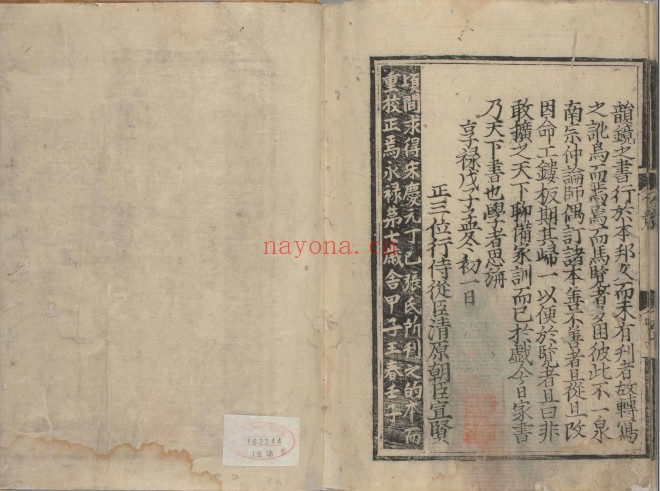 韻鏡之書行於本邦久而未有刊者故轉寫
之訛烏而焉焉而馬覽者多困彼此不一泉
南宗仲論師偶訂諸本善不善者且從且改
因命工鏤板期其歸一以便於覽者且曰非
敢擴之天下聊備家訓而已於戲今日家書
乃天下書也學者思旃
享禄戊子孟冬初一日
正三位行侍從臣清原朝臣宣賢
頃間求得宋慶元丁巳張氏所刊之的本而
重校正焉永禄第七歲舍甲子王春壬子
nayona.cn
162244